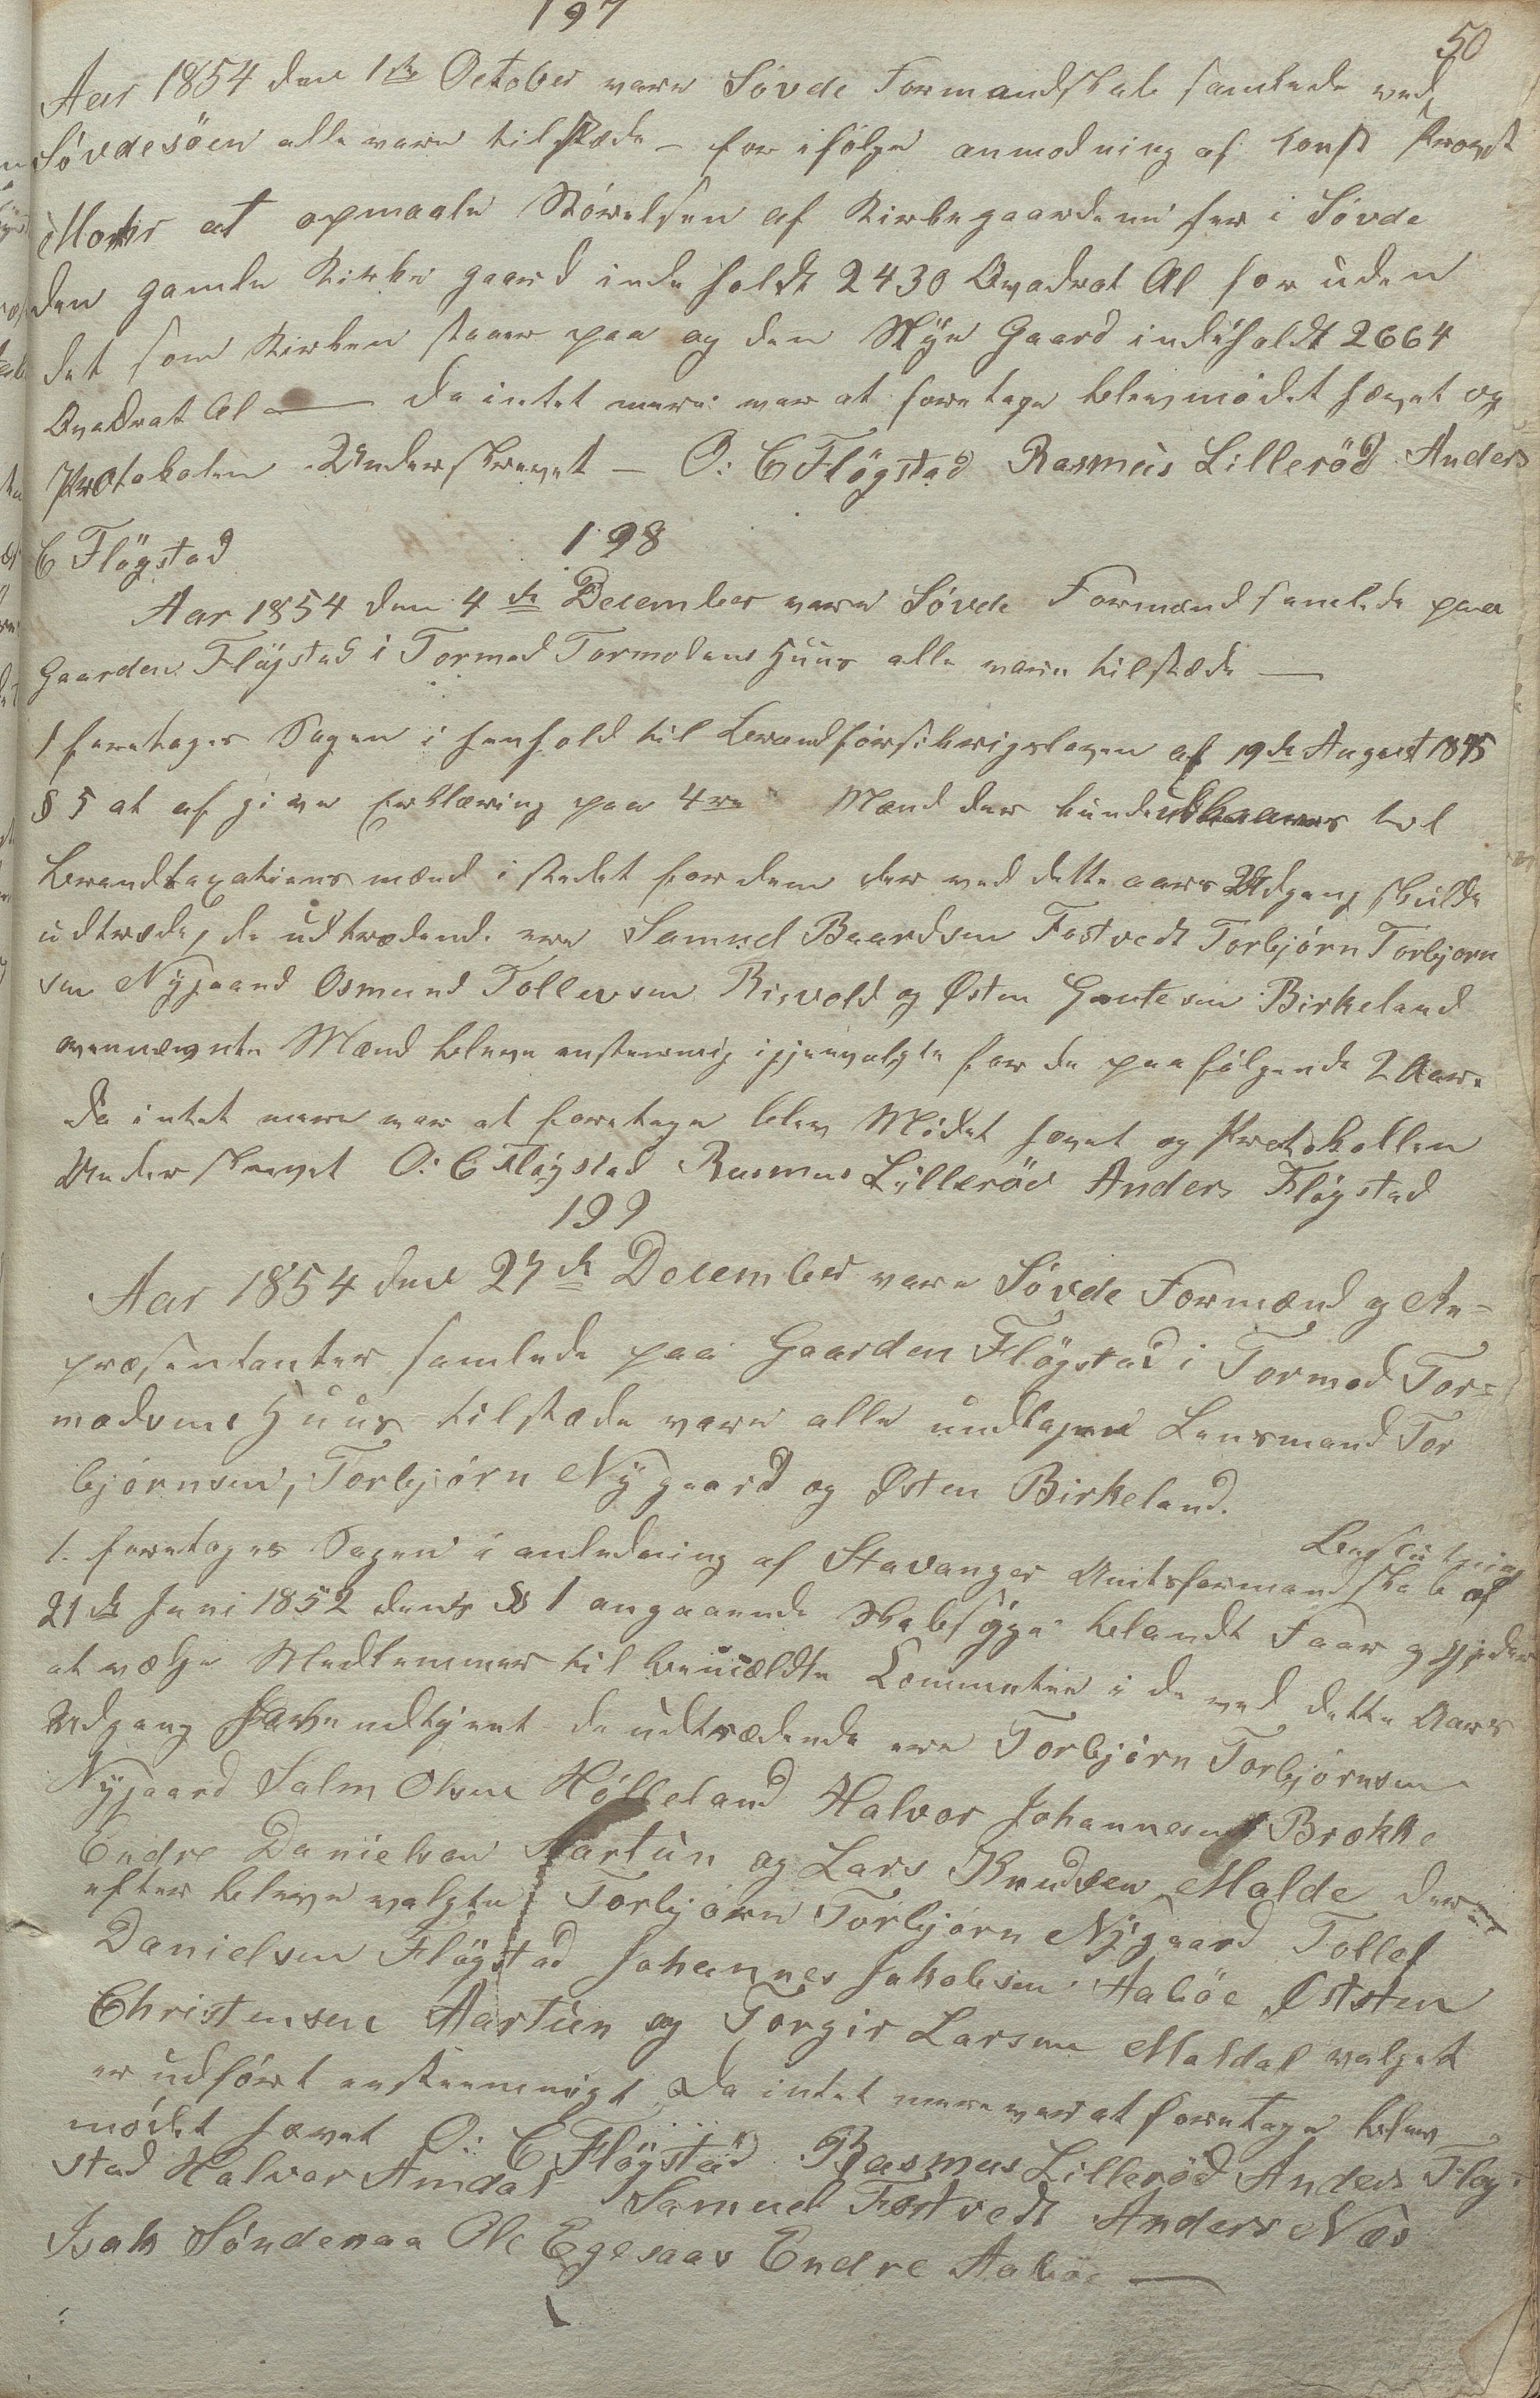 197
50
Aar 1854 den 1ste October vare Søvde Formandskab samlede ved
Søvdesøen alle vare tilstæde – for ifølge anmodning af const Provst
at opmaale Størelsen af Kirkegaardene her i Søvde
den gamle Kirke gaard inde holdt 2430 Qvadrat Al for uden
det som Kirken staaer paa og den Nÿe Gaard indeholdt 2664
Qvadrat Al — da intet mere var at foretage blev mødet hævet og
Protokolen Underskrevet – O: C Fløgstad Rasmus Lillerød Anders
C Fløgstad
198
Aar 1854 den 4de December vare Søvde Formænd samlede paa
Gaarden Fløgstad i Tormod Tormodsens Huus alle vare tilstæde —
1 foretages Sagen i henhold til Brandforsikrigsloven af 19de August 1845
§ 5 at af give Erklæring paa 4re Mænd der kunde udkaares til
Brandtaxations mænd i stedet for dem der ved dette aars Udgang skulde
udtræde, de udtrædende ere Samuel Baardsen Fostvedt Torbjørn Torbjørn
sen Nÿgaard Osmund Tollevsen Risvold og Østen Gautesen Birkeland
ovennævnte Mænd bleve enstemmig igjenvalgte for de paa følgende 2 Aar.
da intet mere var at foretage blev Mødet hævet og Protokollen
Underskrevet O: C Fløgstad Rasmus Lillerød Anders Fløgstad
199
Aar 1854 den 27de December vare Søvde Formænd og Re-
præsentanter samlede paa Gaarden Fløgstad i Tormod Tor=
modsens Huus tilstæde vare alle undtagen Lensmand Tor
bjørnsen, Torbjørn Nÿgaard og Østen Birkeland.
1. foretages Sagen i anledning af Stavanger Amtsformandskabs Beslutning af
21de Juni 1852 dens § 1 angaaende Skabsÿge blandt Faar og Gjeder
at vælge Medlemmer til bemældte Committee i de ved dette Aars
Udgang have udtjent de udtrædende ere Torbjørn Torbjørnsen
Nÿgaard Salm Olsen Hølleland Halvor Johannesen Brække
Endre Danielsen Aartun og Lars Knudsen Molde der=
efter bleve valgte Torbjørn Torbjørn Nÿgaard Tollef
Danielsen Fløgstad Johannes Jakobsen Aabøe Øststen
Christensen Aartun og Torgir Larsen Maldal valget
er udført enstemmigt Da intet mere var at foretage blev
mødet hævet O: C Fløgstad Rasmus Lillerød Anders Fløg-
stad Halvor Amdal Samuel Fostvedt Anders Næs
Isak Søndenaa Ole Egesaas Endre Aabøe —